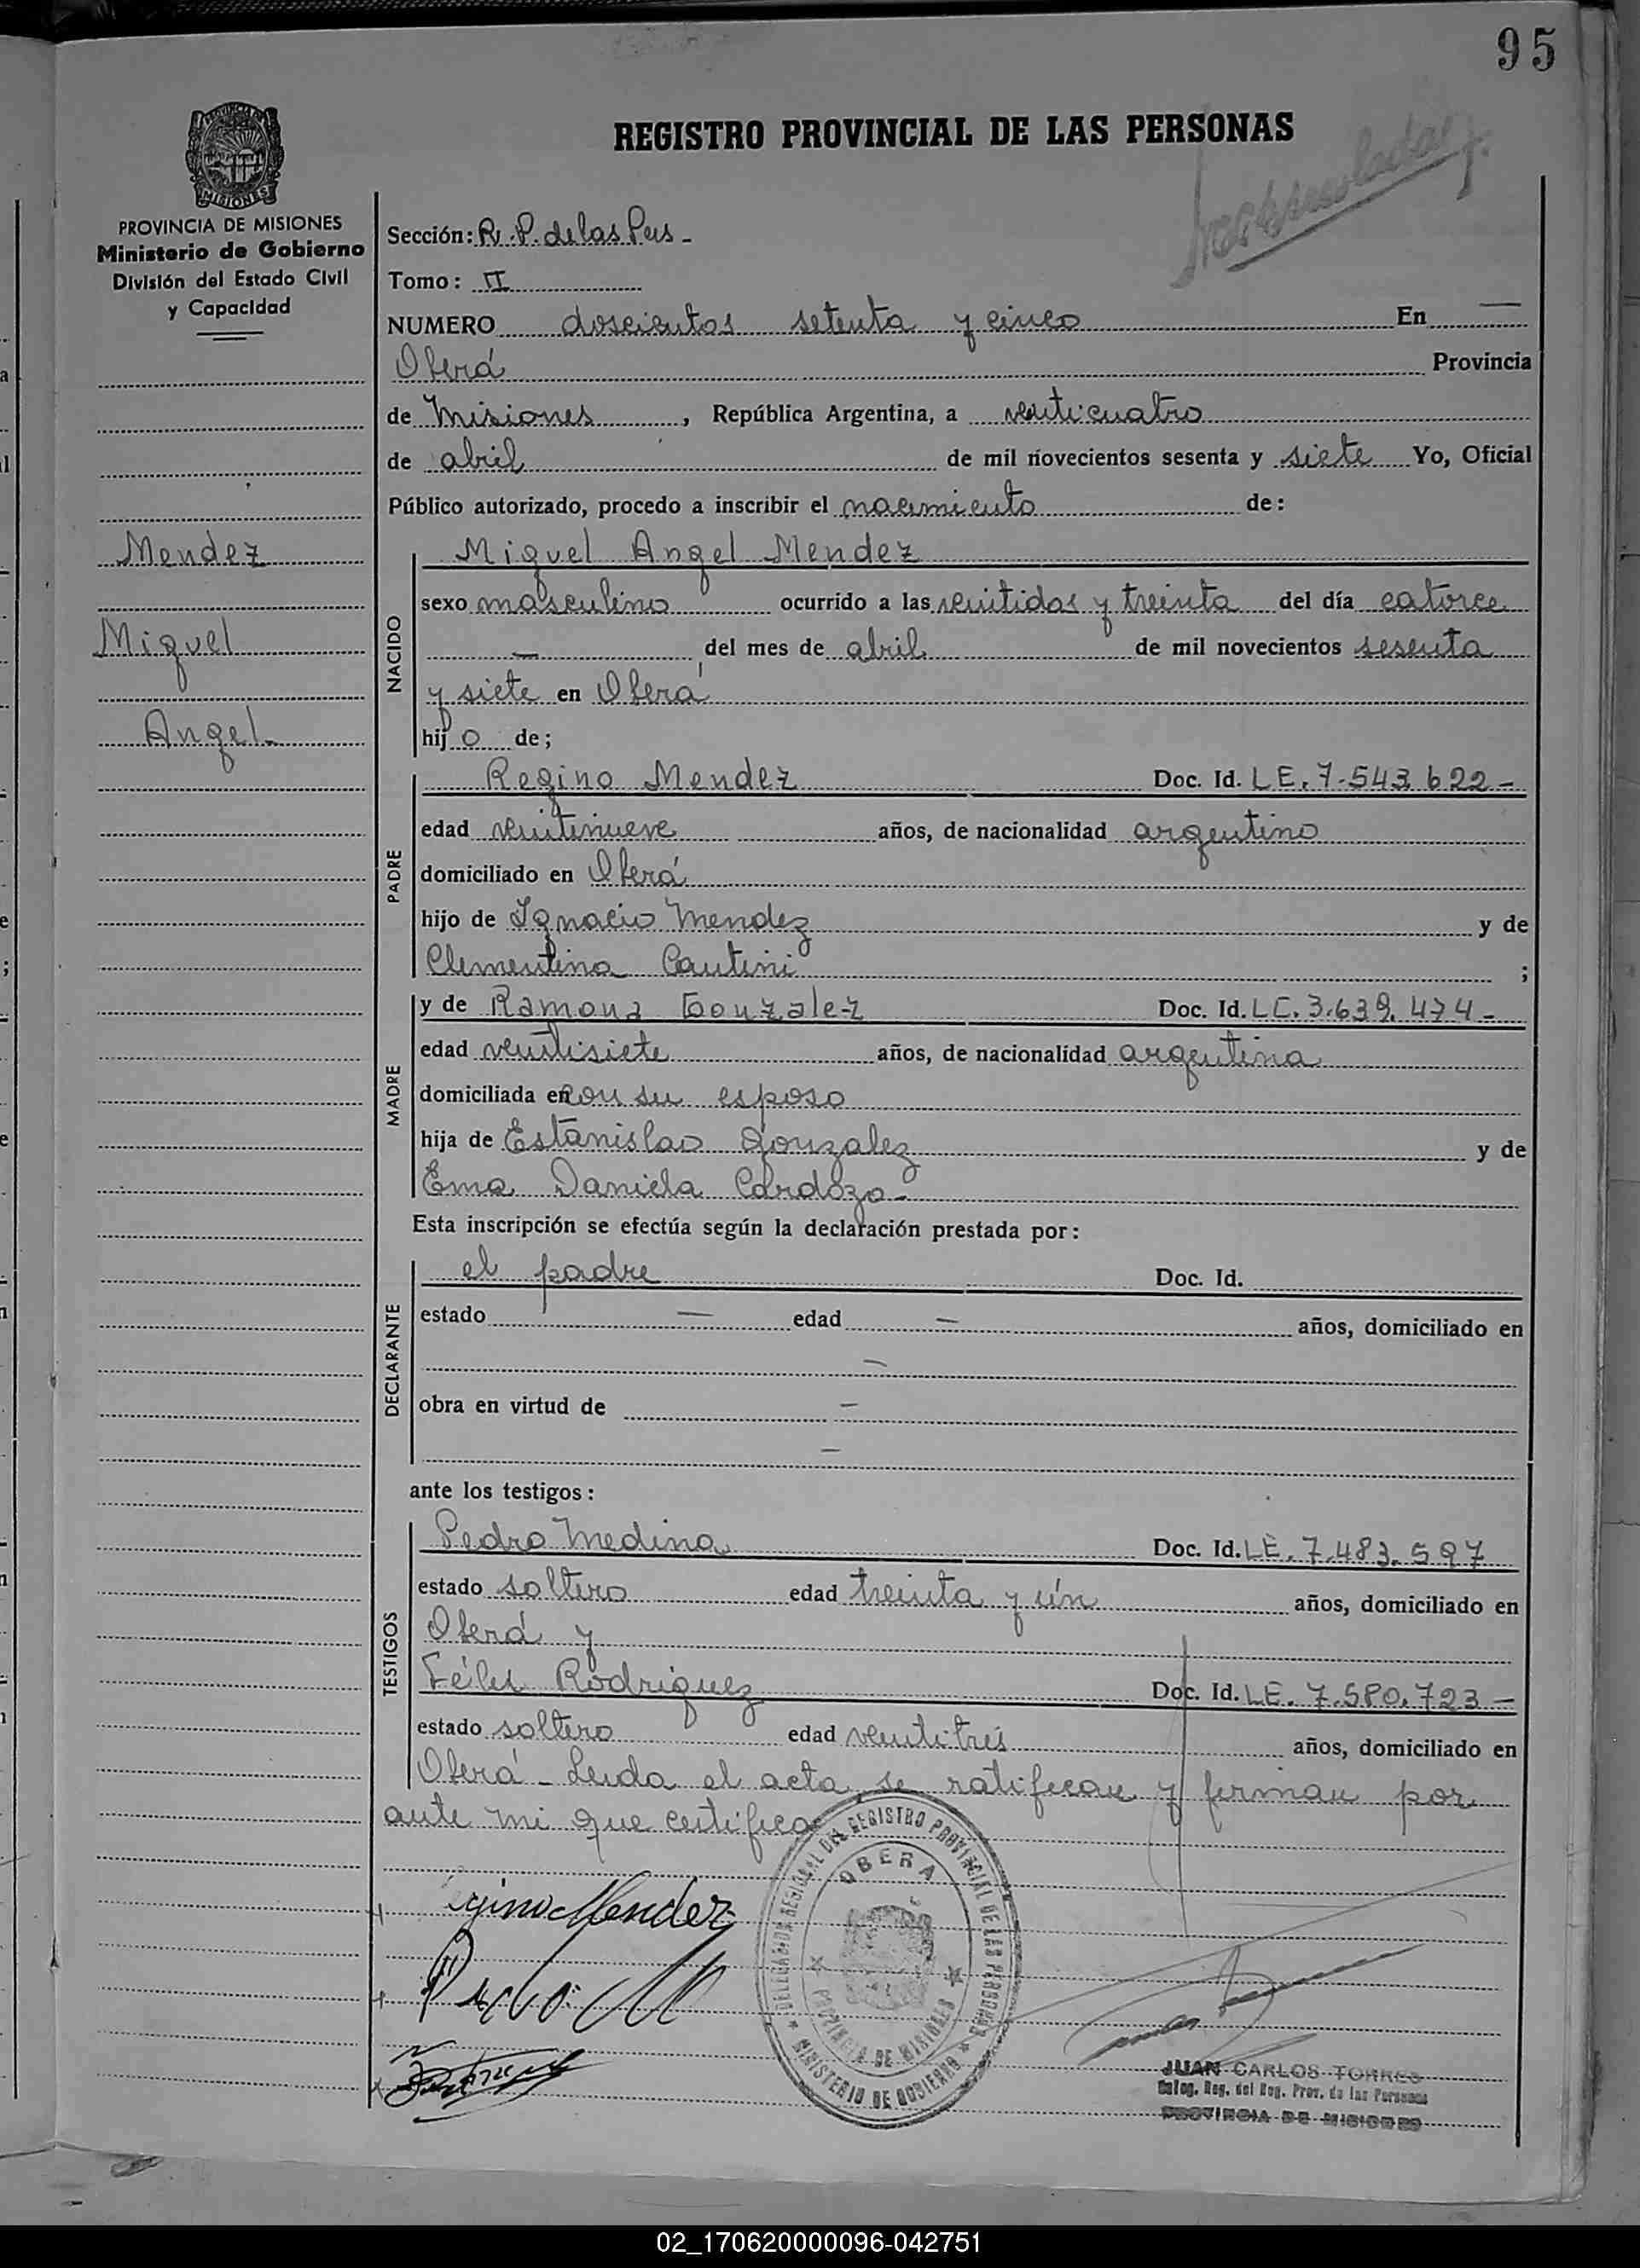 95
REGISTRO PROVINCIAL DE LAS PERSONAS
MISIONES
PROVINCIA DE MISIONES
Ministerio de Gobierno
División del Estado Civil
y Capacidad
Mendez
Miguel
Angel
Sección: R. P. de las Pers -
Tomo: II
NUMERO doscientos setenta y cinco En —
Oberá Provincia
de Misiones, República Argentina, a veinticuatro
de abril de mil novecientos sesenta y siete Yo, Oficial
Público autorizado, procedo a inscribir el nacimiento de:
NACIDO
Miguel Angel Mendez
sexo masculino ocurrido a las veintidos y treinta del día catorce
— del mes de abril de mil novecientos sesenta
y siete en Oberá
hij o de;
PADRE
Regino Mendez Doc. Id. L E. 7.543.622 -
edad veintinueve años, de nacionalidad argentino
domiciliado en Oberá
hijo de Ignacio Mendez y de
Clementina Cantini ;
MADRE
y de Ramona Gonzalez Doc. Id. L C. 3.639.474 -
edad veintisiete años, de nacionalidad argentina
domiciliada en con su esposo
hija de Estanislao Gonzalez y de
Ema Daniela Cardozo -
Esta inscripción se efectúa según la declaración prestada por:
DECLARANTE
el padre Doc. Id.
estado — edad — años, domiciliado en
—
obra en virtud de —
—
ante los testigos:
TESTIGOS
Pedro Medina Doc. Id. L E. 7.483.597
estado soltero edad treinta y ún años, domiciliado en
Oberá y
Félix Rodriguez Doc. Id. L E. 7.580.723 -
estado soltero edad veintitrés años, domiciliado en
Oberá - Leida el acta, se ratifican y firman por
ante mi que certifico
egino Mendez
DELEGACION REGIONAL DEL REGISTRO PROVINCIAL DE LAS PERSONAS
OBERA
PROVINCIA DE MISIONES
MINISTERIO DE GOBIERNO
JUAN CARLOS TORRES
Deleg. Reg. del Reg. Prov. de las Personas
PROVINCIA DE MISIONES
02_170620000096-042751